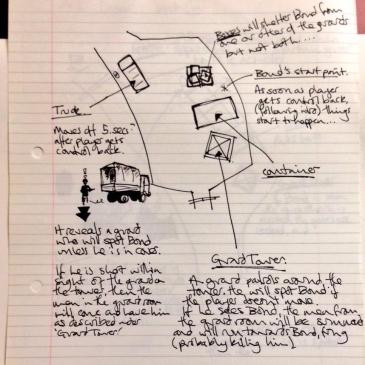 Boxes will shelter Bond from
one or other of the guards
but not both...
Bond's start point.
As soon as player
gets control back,
(following intro) things
start to happen...
Truck
Moves off 5 secs
after player gets
control back.
container
It reveals a guard
who will spot Bond
unless he is in cover.
If he is shot within
sight of the guard on
the tower, then the
men in the guardroom
will come and have him
as described under
"Guard Tower"
Guard Tower
A guard patrols around the
tower. He will spot Bond if
the player doesn't move.
If he sees Bond, the men from
the guardroom will be summoned
and will run towards Bond, firing
(probably killing him)